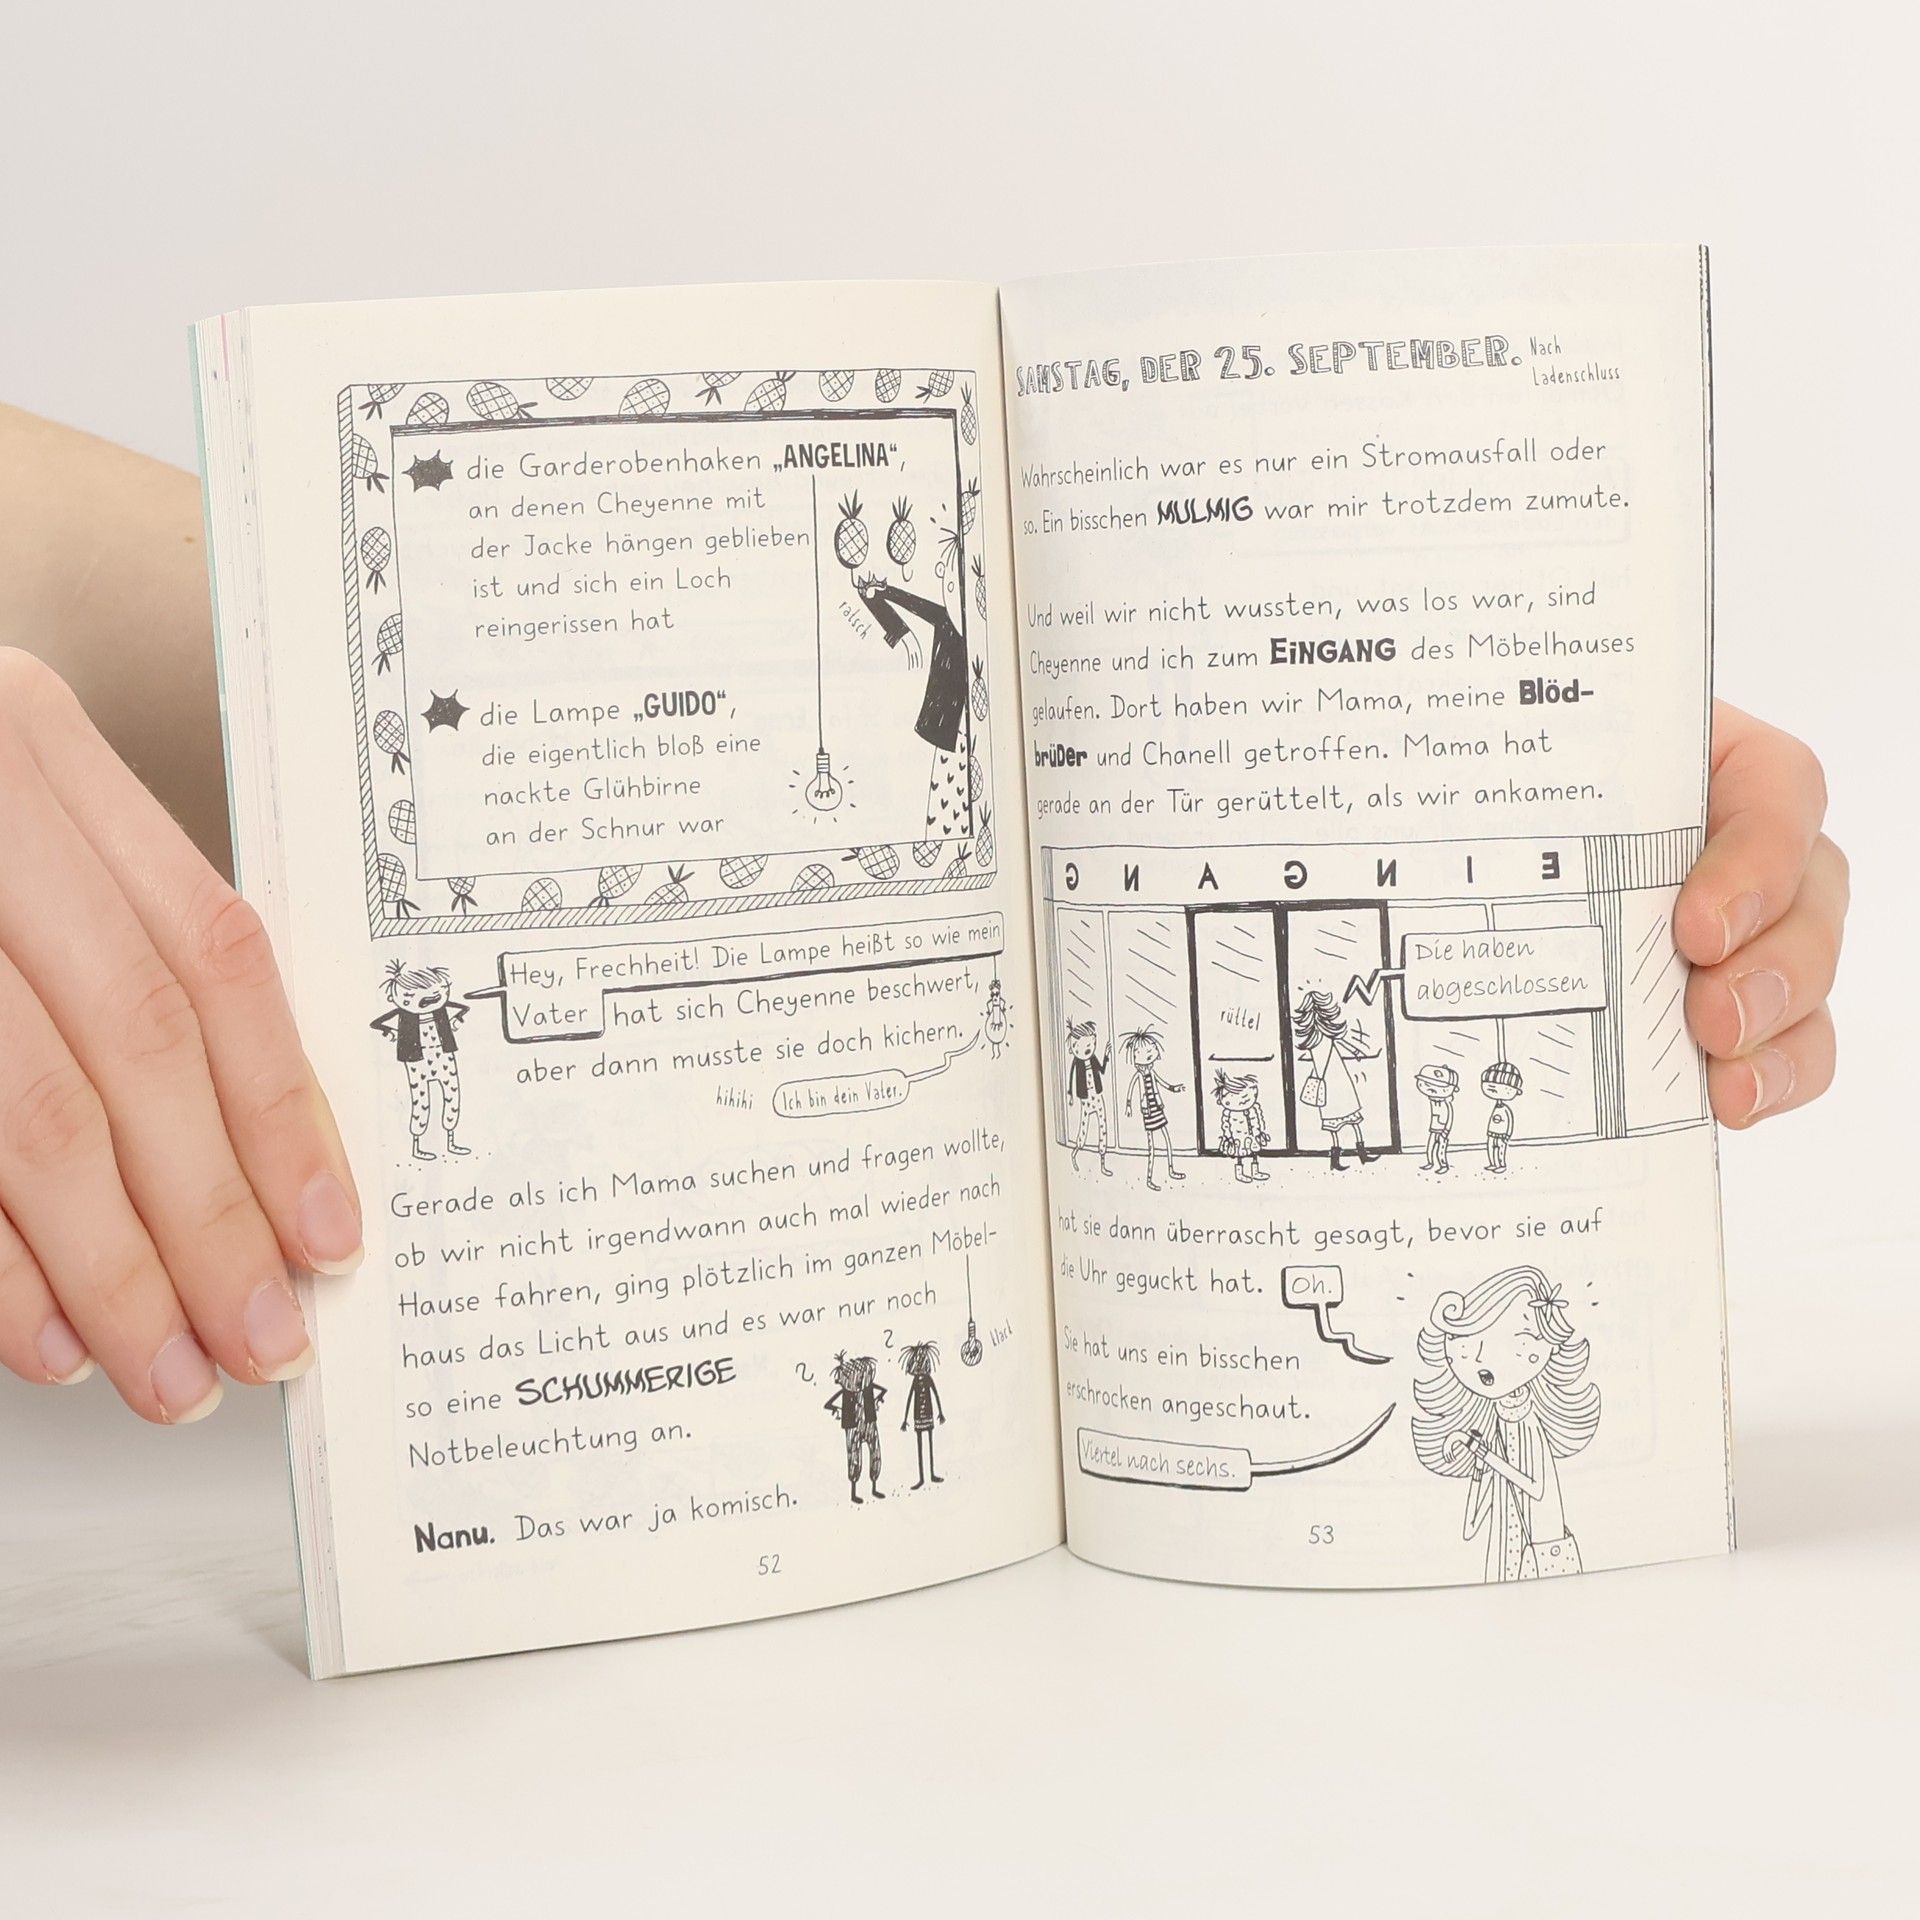 die Garderobenhaken „ANGELINA“,
an denen Cheyenne mit
der Jacke hängen geblieben
ist und sich ein Loch
reingerissen hat
ratsch
die Lampe „GUIDO“,
die eigentlich bloß eine
nackte Glühbirne
an der Schnur war
Hey, Frechheit! Die Lampe heißt so wie mein
Vater hat sich Cheyenne beschwert,
aber dann musste sie doch kichern.
hihihi Ich bin dein Vater.
Gerade als ich Mama suchen und fragen wollte,
ob wir nicht irgendwann auch mal wieder nach
Hause fahren, ging plötzlich im ganzen Möbel-
haus das Licht aus und es war nur noch
klack
? ?
so eine SCHUMMERIGE
Notbeleuchtung an.
Nanu. Das war ja komisch.
52
SAMSTAG, DER 25. SEPTEMBER. Nach
Ladenschluss
Wahrscheinlich war es nur ein Stromausfall oder
so. Ein bisschen MULMIG war mir trotzdem zumute.
Und weil wir nicht wussten, was los war, sind
Cheyenne und ich zum EiNGANG des Möbelhauses
gelaufen. Dort haben wir Mama, meine Blöd-
brüDer und Chanell getroffen. Mama hat
gerade an der Tür gerüttelt, als wir ankamen.
EINGANG
Die haben
abgeschlossen
rüttel
hat sie dann überrascht gesagt, bevor sie auf
die Uhr geguckt hat. Oh.
Sie hat uns ein bisschen
erschrocken angeschaut.
Viertel nach sechs.
53